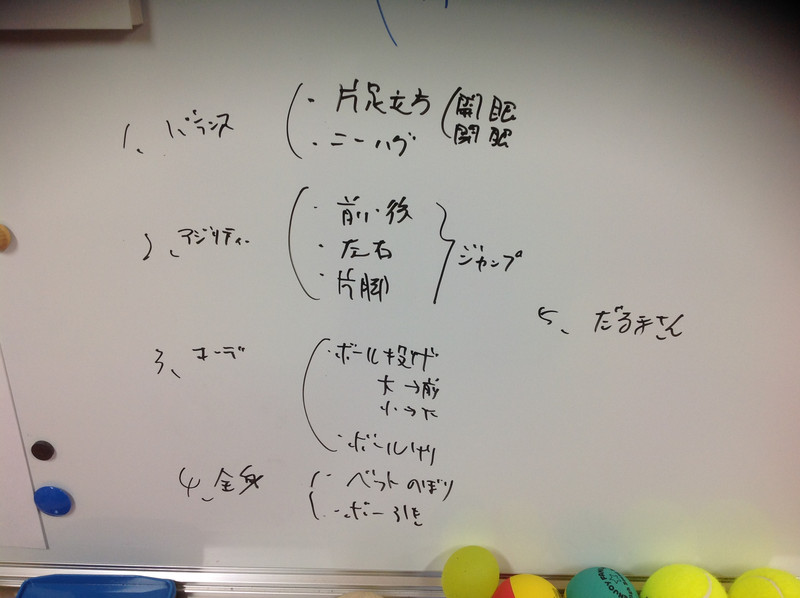 1、バランス
・片足立方
・ニーハグ
開眼
閉眼
2、アジリティー
・前・後
・左右
・片脚
ジャンプ
3、コーデ
・ボール投げ
大→前
小→
・ボールけり
4、全身
・ベットのぼり
・ボー引き
5、だるまさん